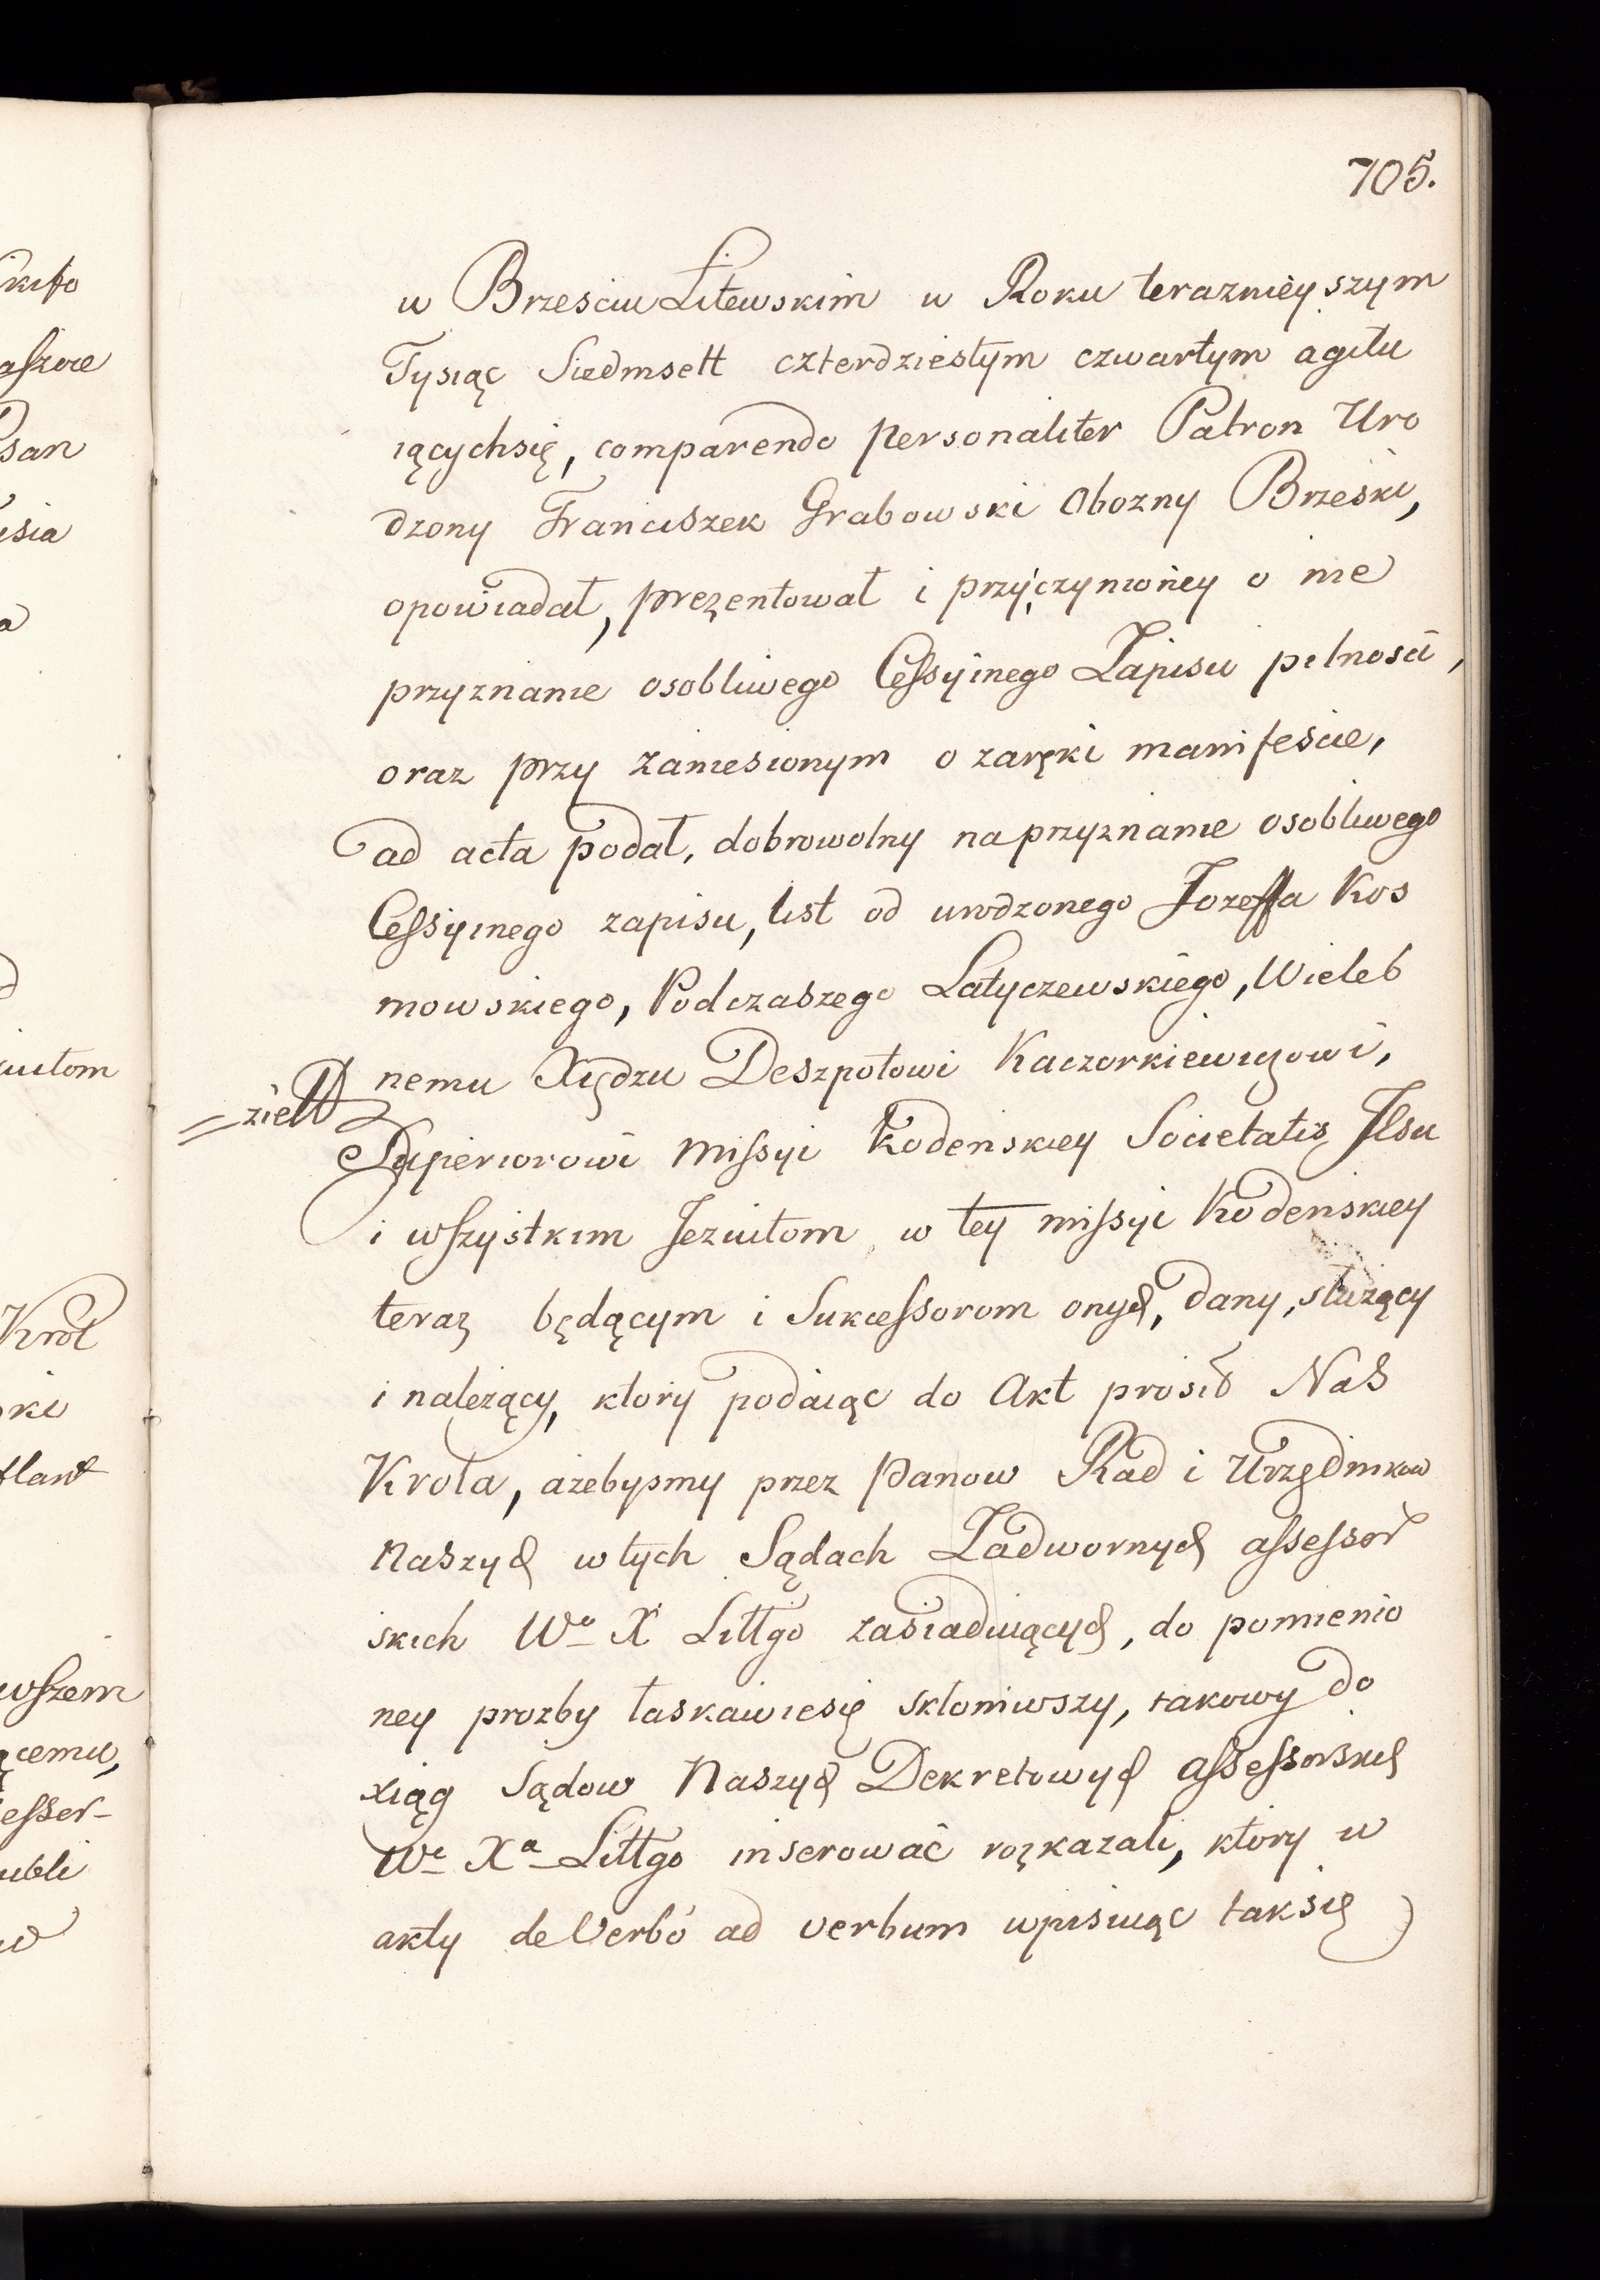 705.
w Brzesciu Litewskim w Roku teraznieyszym
Tysiąc Siedmsett czterdziestym czwartym agitu
iącychsię, comparendo personaliter Patron Uro
dzony Franciszek Grabowski Obozny Brzeski,
opowiadał, prezentował i przyczynioney o nie
przyznanie osobliwego Cessyinego Zapisu pilnosci,
oraz przy zaniesionym o zaręki manifescie,
ad acta podał, dobrowolny na przyznanie osobliwego
Cessyinego zapisu, list od urodzonego Jozeffa Kos
mowskiego, Podczaszego Latyczewskiego, Wieleb
nemu Xiędzu Deszpotowi Kaczorkiewiczowi,
Superiorowi Missyi Kodenskiey Societatis Jesu
i wszystkim Jezuitom w tey missyi Kodenskiey
teraz będącym i Sukcessorom onych, dany, służący
i należący, ktory podaiąc do Akt prosił Nas
Krola, ażebysmy przez Panow Rad i Urzędnikow
Naszych w tych Sądach Zadwornych assessor
skich Wo X Littgo zasiadaiących, do pomienio
ney prozby łaskawiesię skłoniwszy, takowy do
xiąg Sądow Naszych Dekretowych assessorskich
Wo Xa Littgo inserować rozkazali, ktory w
akty de Verbo ad verbum wpisuiąc taksię